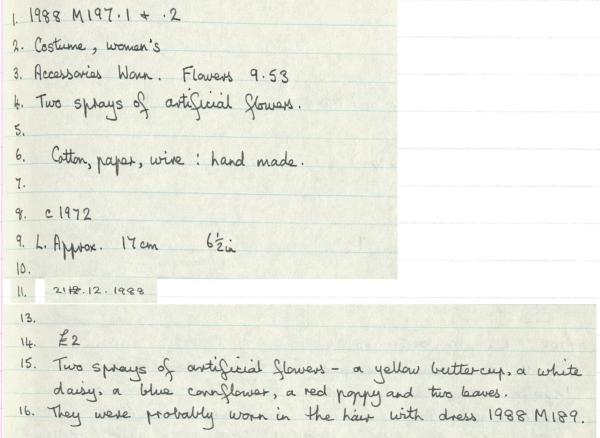 1. 1988 M197.1 & .2
2. Costume, women's
3. Accessories Worn. Flowers 9.53
4. Two sprays of artificial flowers.
5.
6. Cotton, paper, wire : hand made.
7.
8. c 1972
9. L. Approx. 17cm 6½in
10.
11. 21.12.1988
13.
14. £2
15. Two sprays of artificial flowers - a yellow buttercup, a white
daisy, a blue cornflower, a red poppy and two leaves.
16. They were probably worn in the hair with dress 1988 M189.